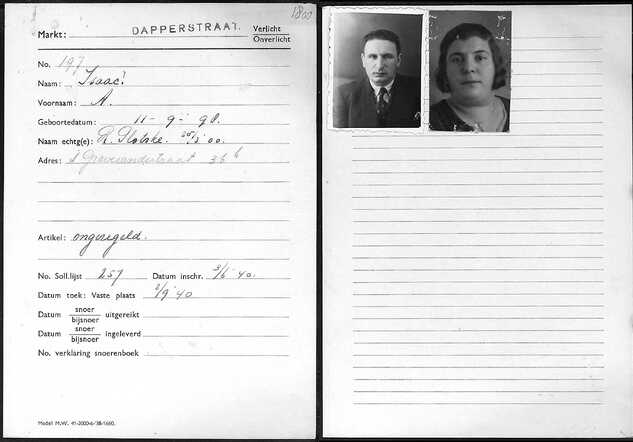 1800
Markt: DAPPERSTRAAT. Verlicht
Onverlicht
No. 197
Naam: Isaac
Voornaam: A.
Geboortedatum: 11-9-98.
Naam echtg(e): R. 00.
Adres: s Gravesandestraat 36
Artikel: ongeregeld.
No. Soll.lijst 257 Datum inschr. 3/5 40.
Datum toek: Vaste plaats 2/9 40
Datum snoer
bijsnoer uitgereikt
Datum snoer
bijsnoer ingeleverd
No. verklaring snoerenboek
Model M.W. 41-2000-6/38-1660.